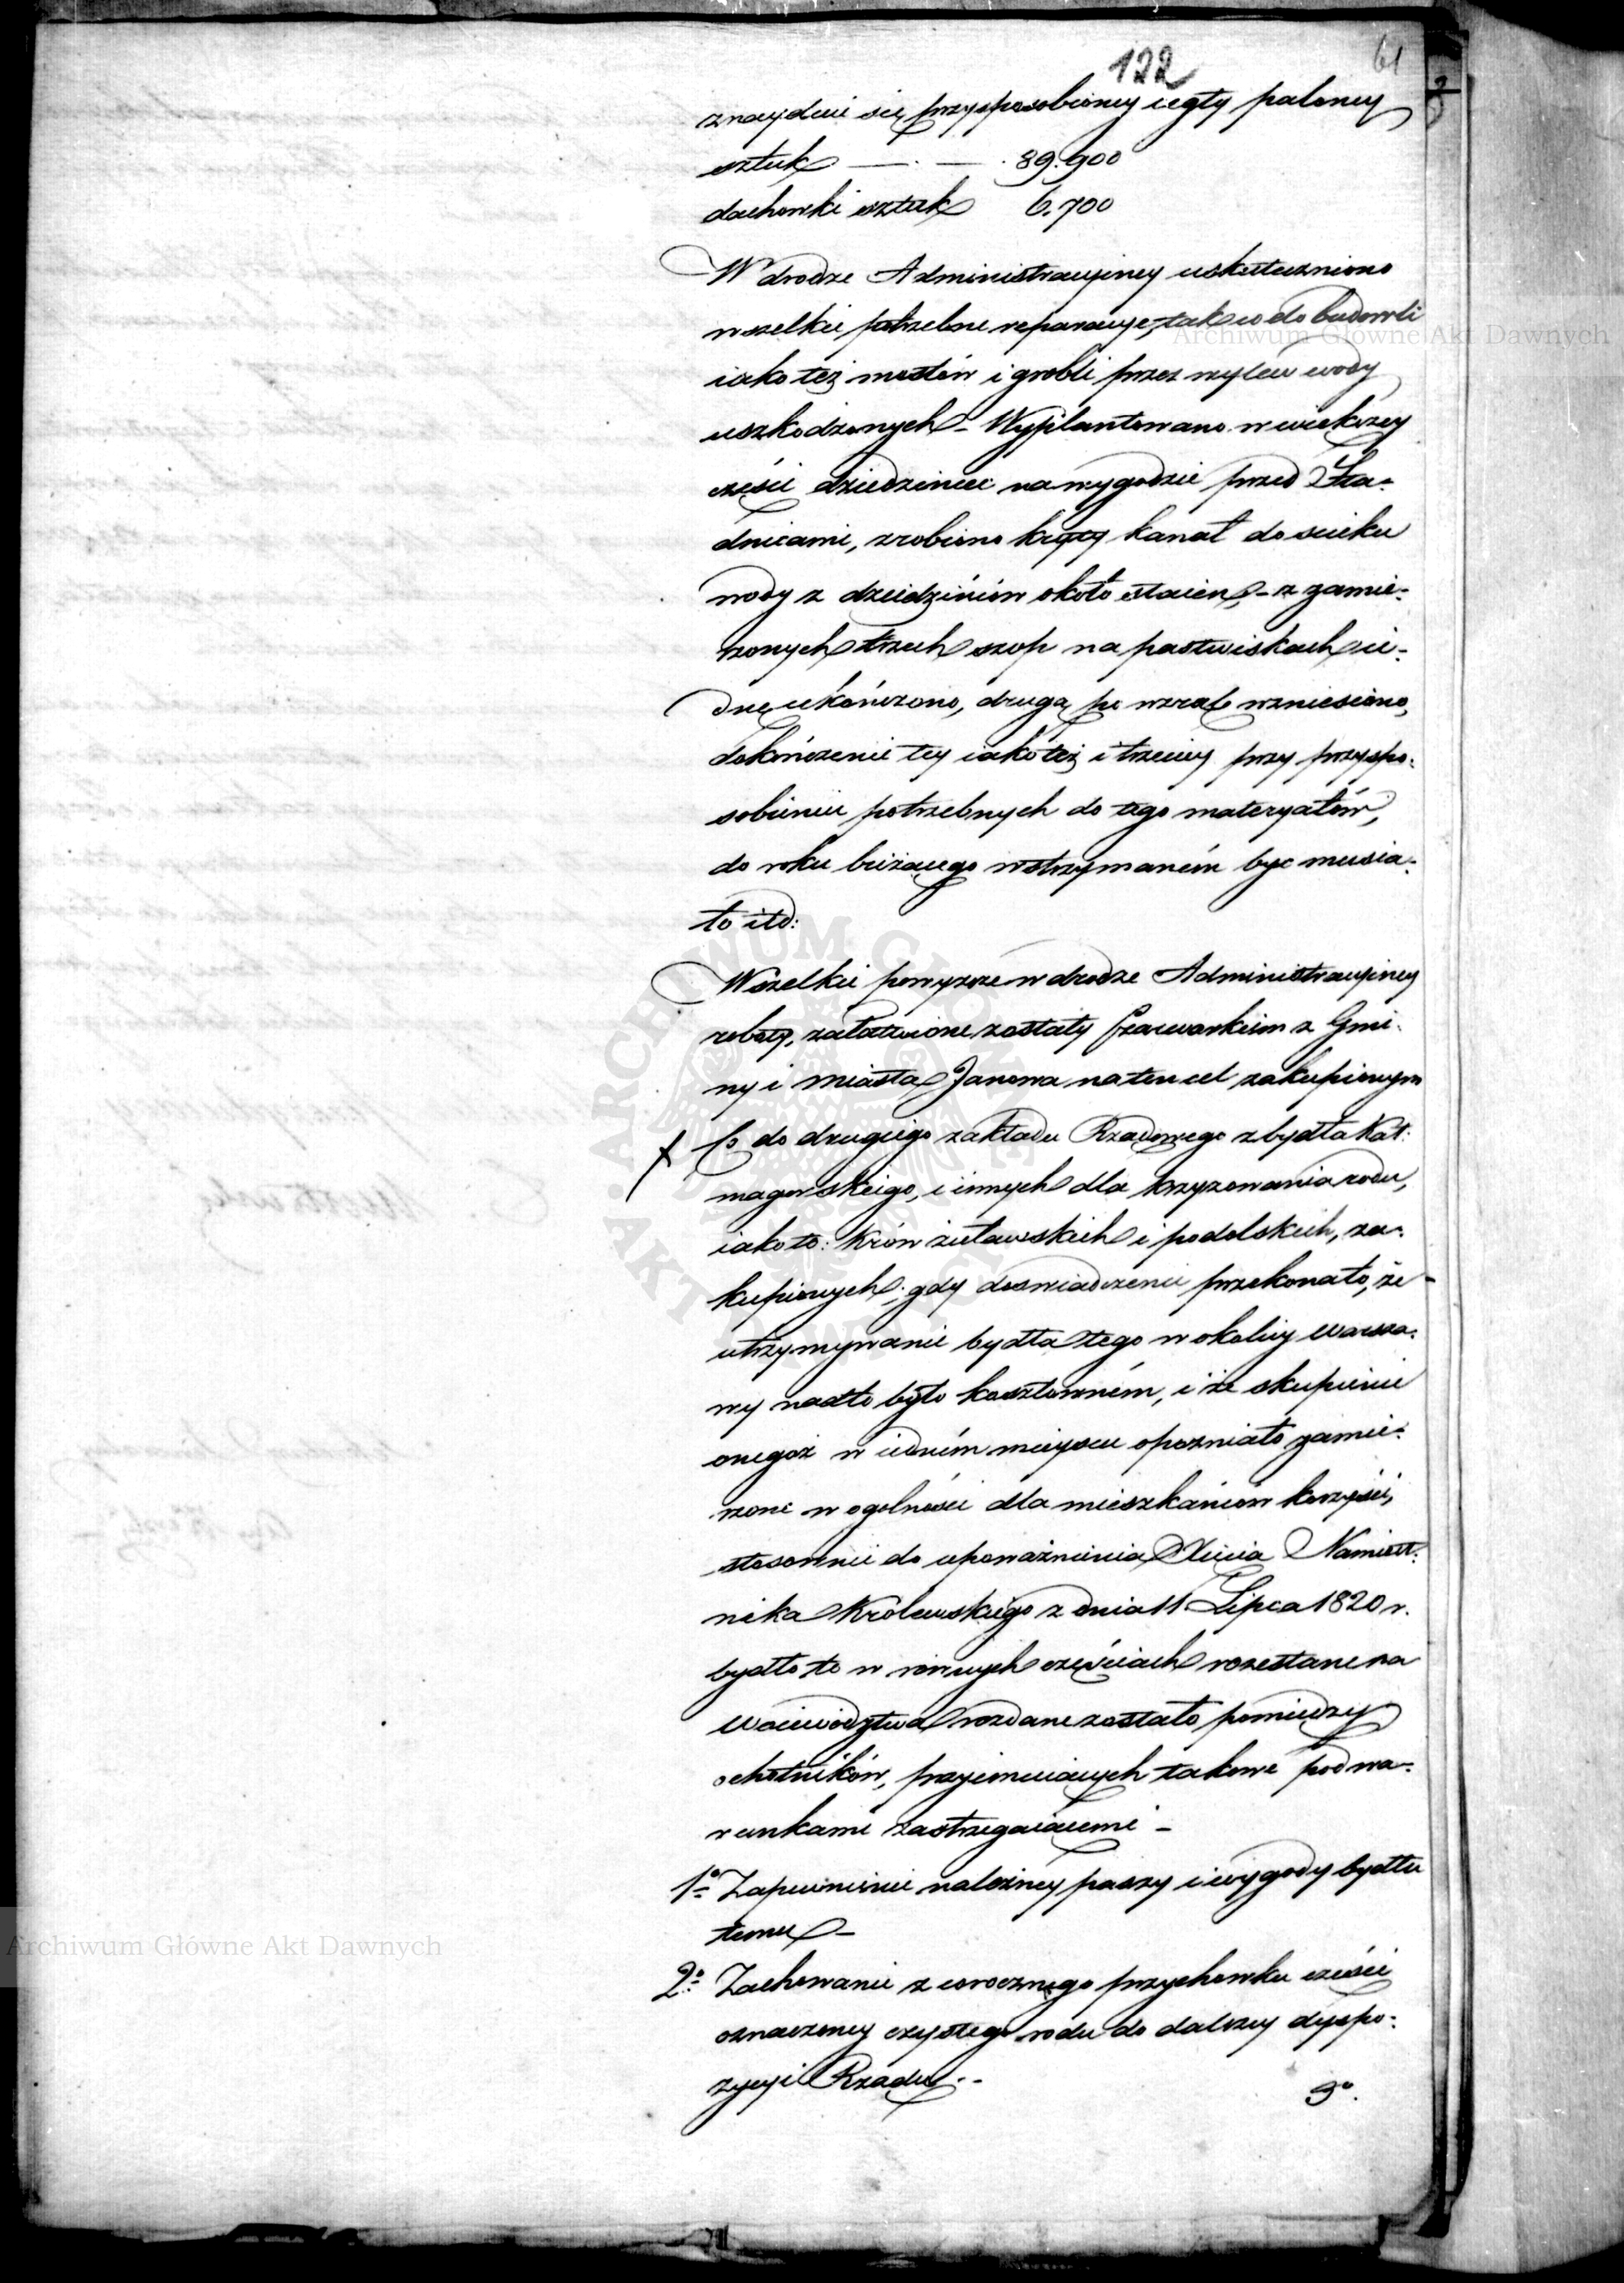 122
61
znayduie się przysposobioney cegły paloney
sztuk — . — . 89.900
dachówki sztuk 6.700
W drodze Administracyiney uskuteczniono
wszelkie potrzebne reparacye, tak co do budowli
iako też mostów i grobli przez wylew wody
uszkodzonych – Wyplantowano w większey
części dziedziniec na wygodzie przed Sta-
dnicami, zrobiono kryty kanał do scieku
wody z dziedzińców około staien, – z zamie-
rzonych trzech szop na pastwiskach ie-
dnę ukończono, drugą po wzrąb wzniesiono,
dokończenie tey iako też i trzeciey przy przyspo-
sobieniu potrzebnych do tego materyałów,
do roku bieżącego wstrzymaném być musia-
ło itd:
Wszelkie powyższe w drodze Administracyiney
roboty, załatwione zostały szarwarkiem z Gmi-
ny i miasta Janowa na ten cel zakupionym
Co do drugiego zakładu Rządowego z bydła Kał-
magorskiego, i innych dla krzyżowania rodu,
iako to: krów żuławskich i podolskich, za-
kupionych; gdy doswiadczenie przekonało, że
utrzymywanie bydła tego w okolicy Warsza-
wy nadto było kosztowném, i że skupienie
onegoż w iedném mieyscu opozniało zamie-
rzone w ogólności dla mieszkańców korzyści,
stosownie do upoważnienia Xięcia Namiest-
nika Królewskiego z dnia 11 Lipca 1820 r.
bydło to w rownych częściach rozesłane na
Woiewództwa rozdane zostało pomiędzy
ochotników, przyimuiących takowe pod wa-
runkami zastrzegaiącemi –
1º Zapewnienie należney paszy i wygody bydłu
temu –
2º Zachowanie z corocznego przychowku części
oznaczoney czystego rodu do dalszey dyspo-
zycyi Rządu. –
3º.
Archiwum Główne Akt Dawnych
Archiwum Główne Akt Dawnych